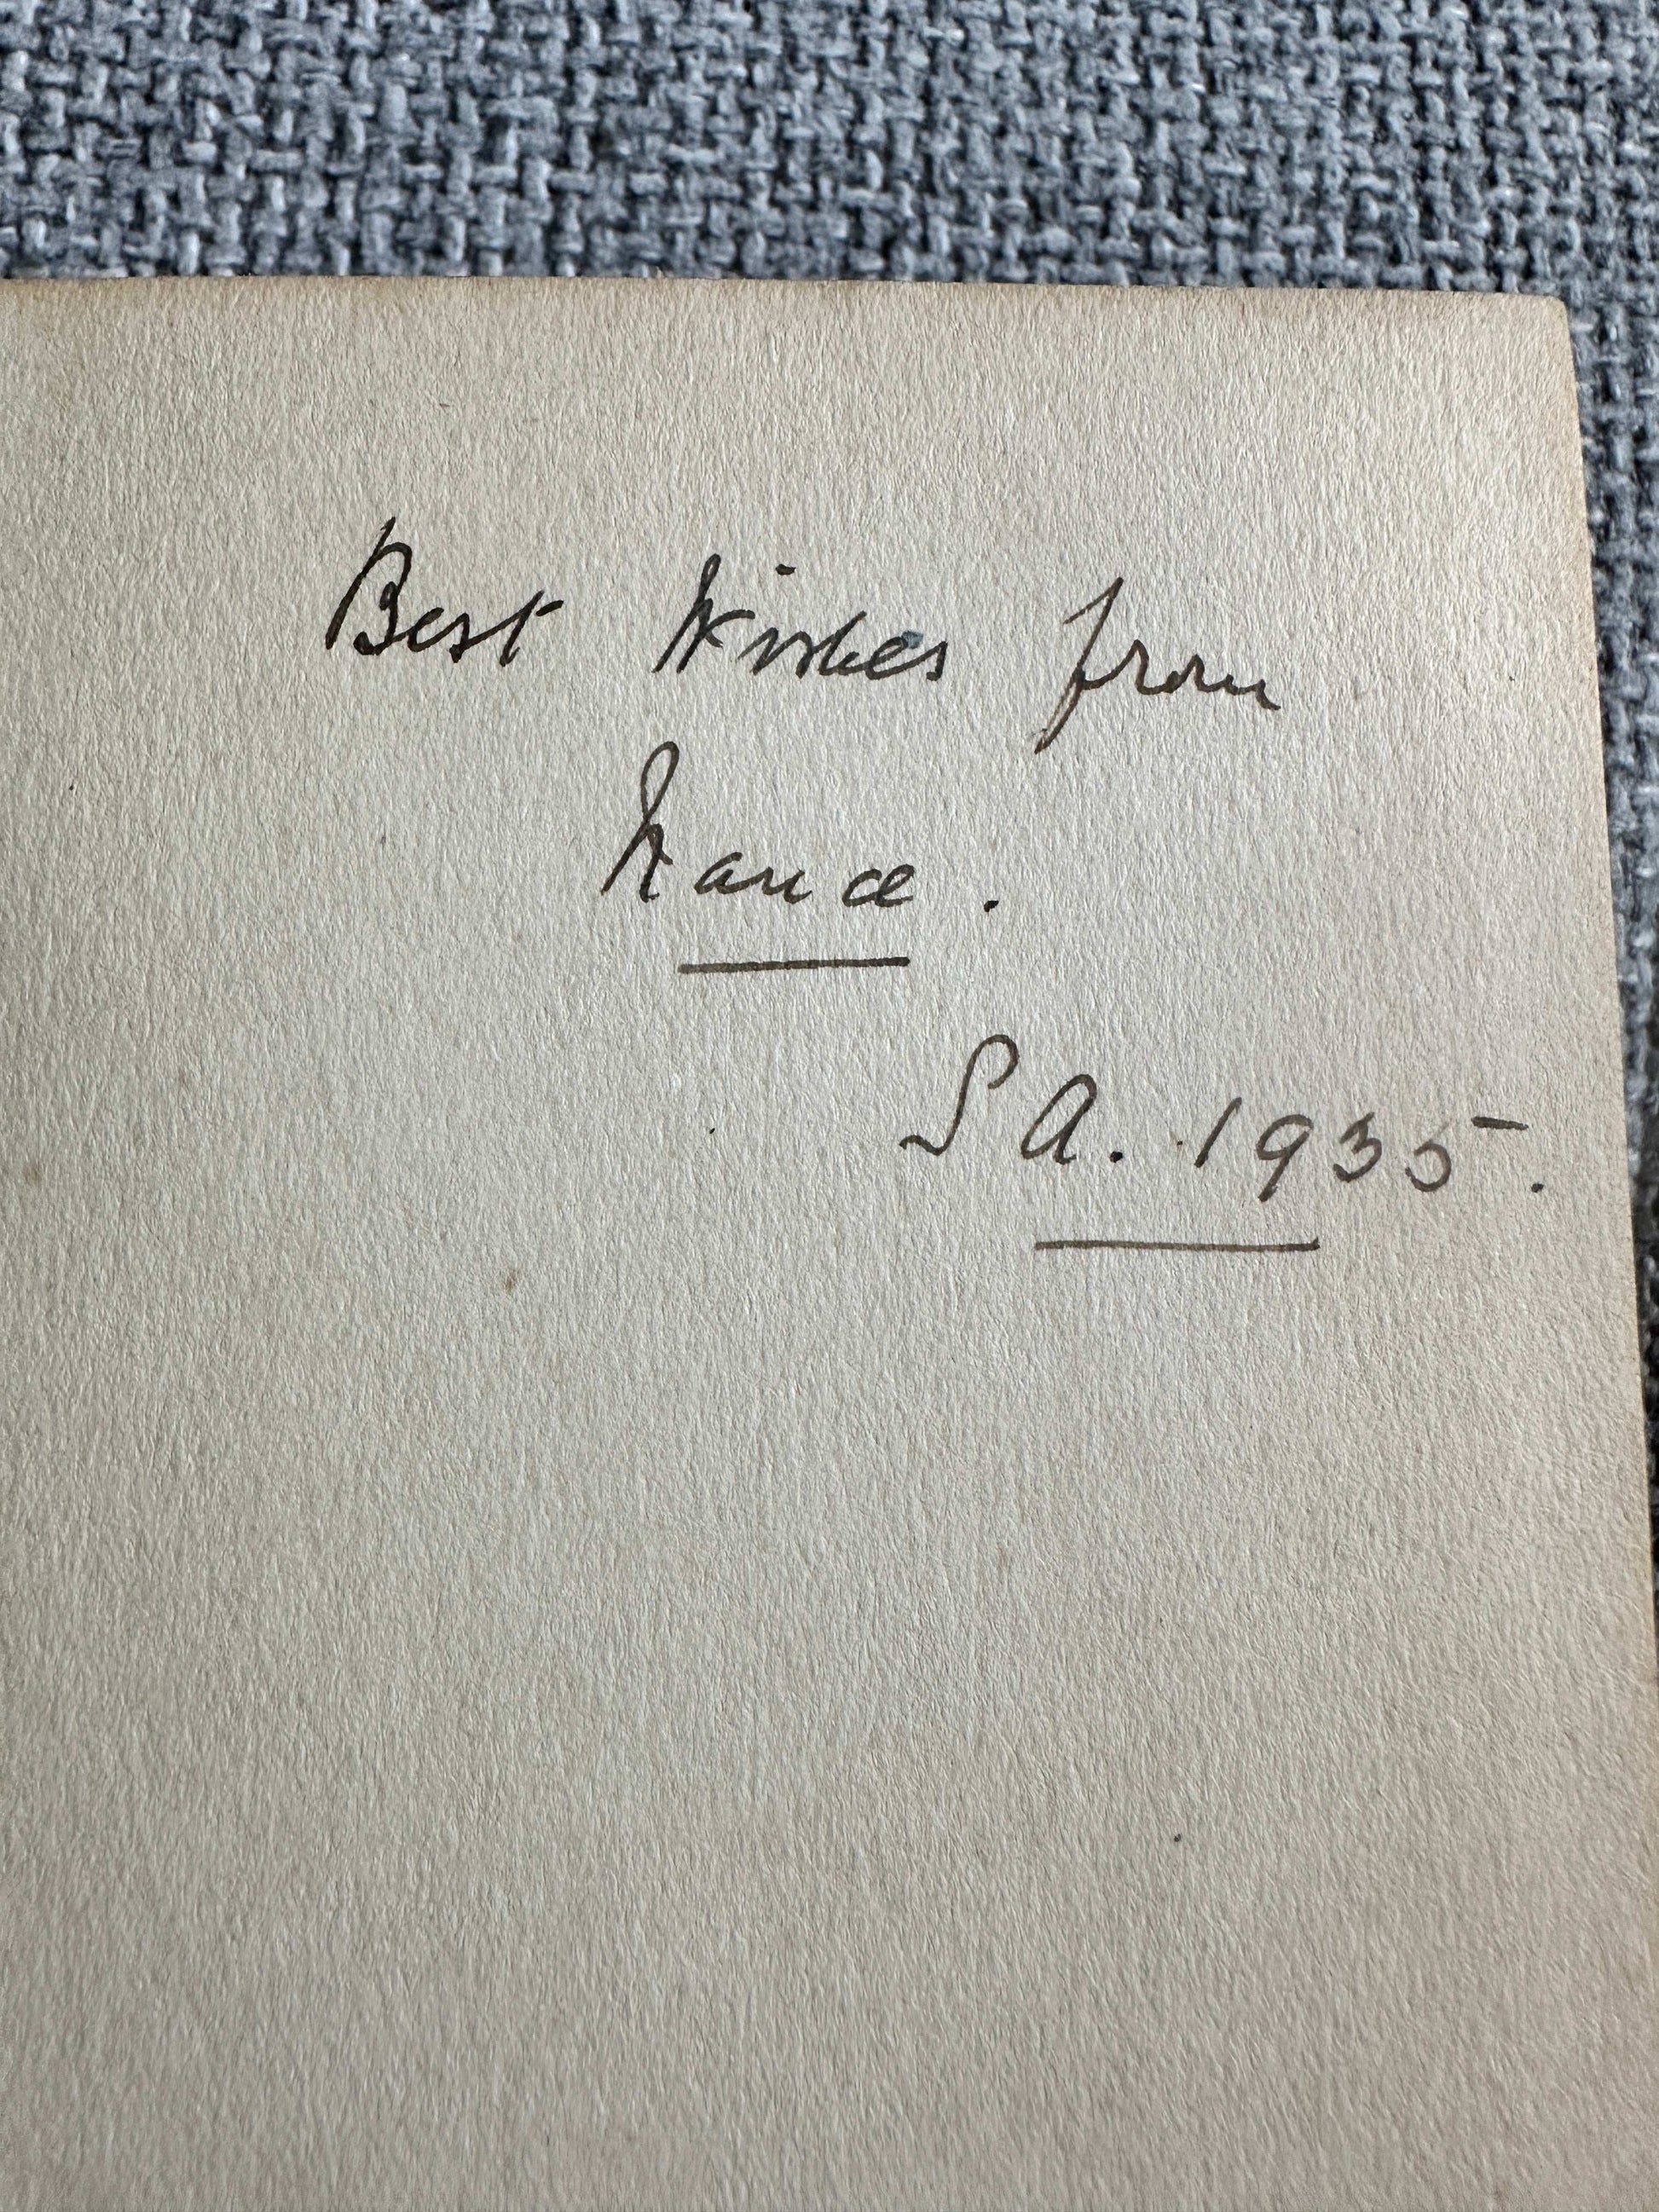 Best Wishes from
Nance.
S A. 1935.